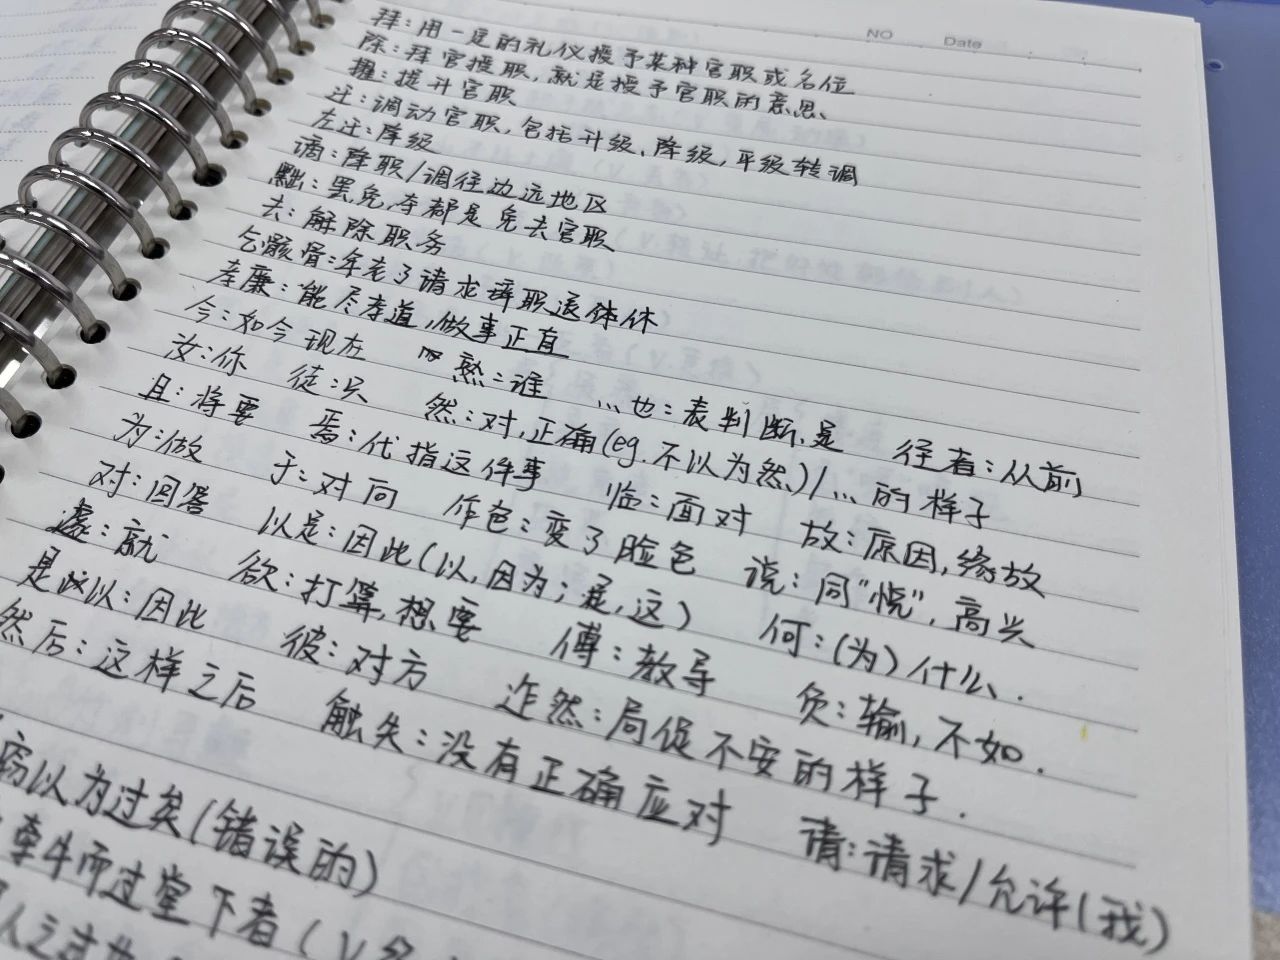 NO Date
拜：用一定的礼仪授予某种官职或名位
除：拜官授职，就是授予官职的意思、
擢：提升官职
迁：调动官职，包括升级、降级，平级转调
左迁：降级
谪：降职/调往边远地区
黜：罢免，夺都是免去官职
去：解除职务
乞骸骨：年老了请求辞职退体休
孝廉：能尽孝道，做事正直
今：如今现在 孰：谁 …也：表判断、是 往者：从前
汝：你 徒：只 然：对，正确(eg.不以为然)/…的样子
且：将要 焉：代指这件事 临：面对 故：原因，缘故
为：做 于：对 向 作色：变了脸色 说：同“悦”，高兴
对：回答 以是：因此(以，因为；是，这) 何：(为)什么.
遽：就 欲：打算，想要 傅：教导 负：输，不如.
是以：因此 彼：对方 迮然：局促不安的样子.
然后：这样之后 触失：没有正确应对 请：请求/允许(我)
窃以为过矣(错误的)
牵牛而过堂下者(v.
人之过